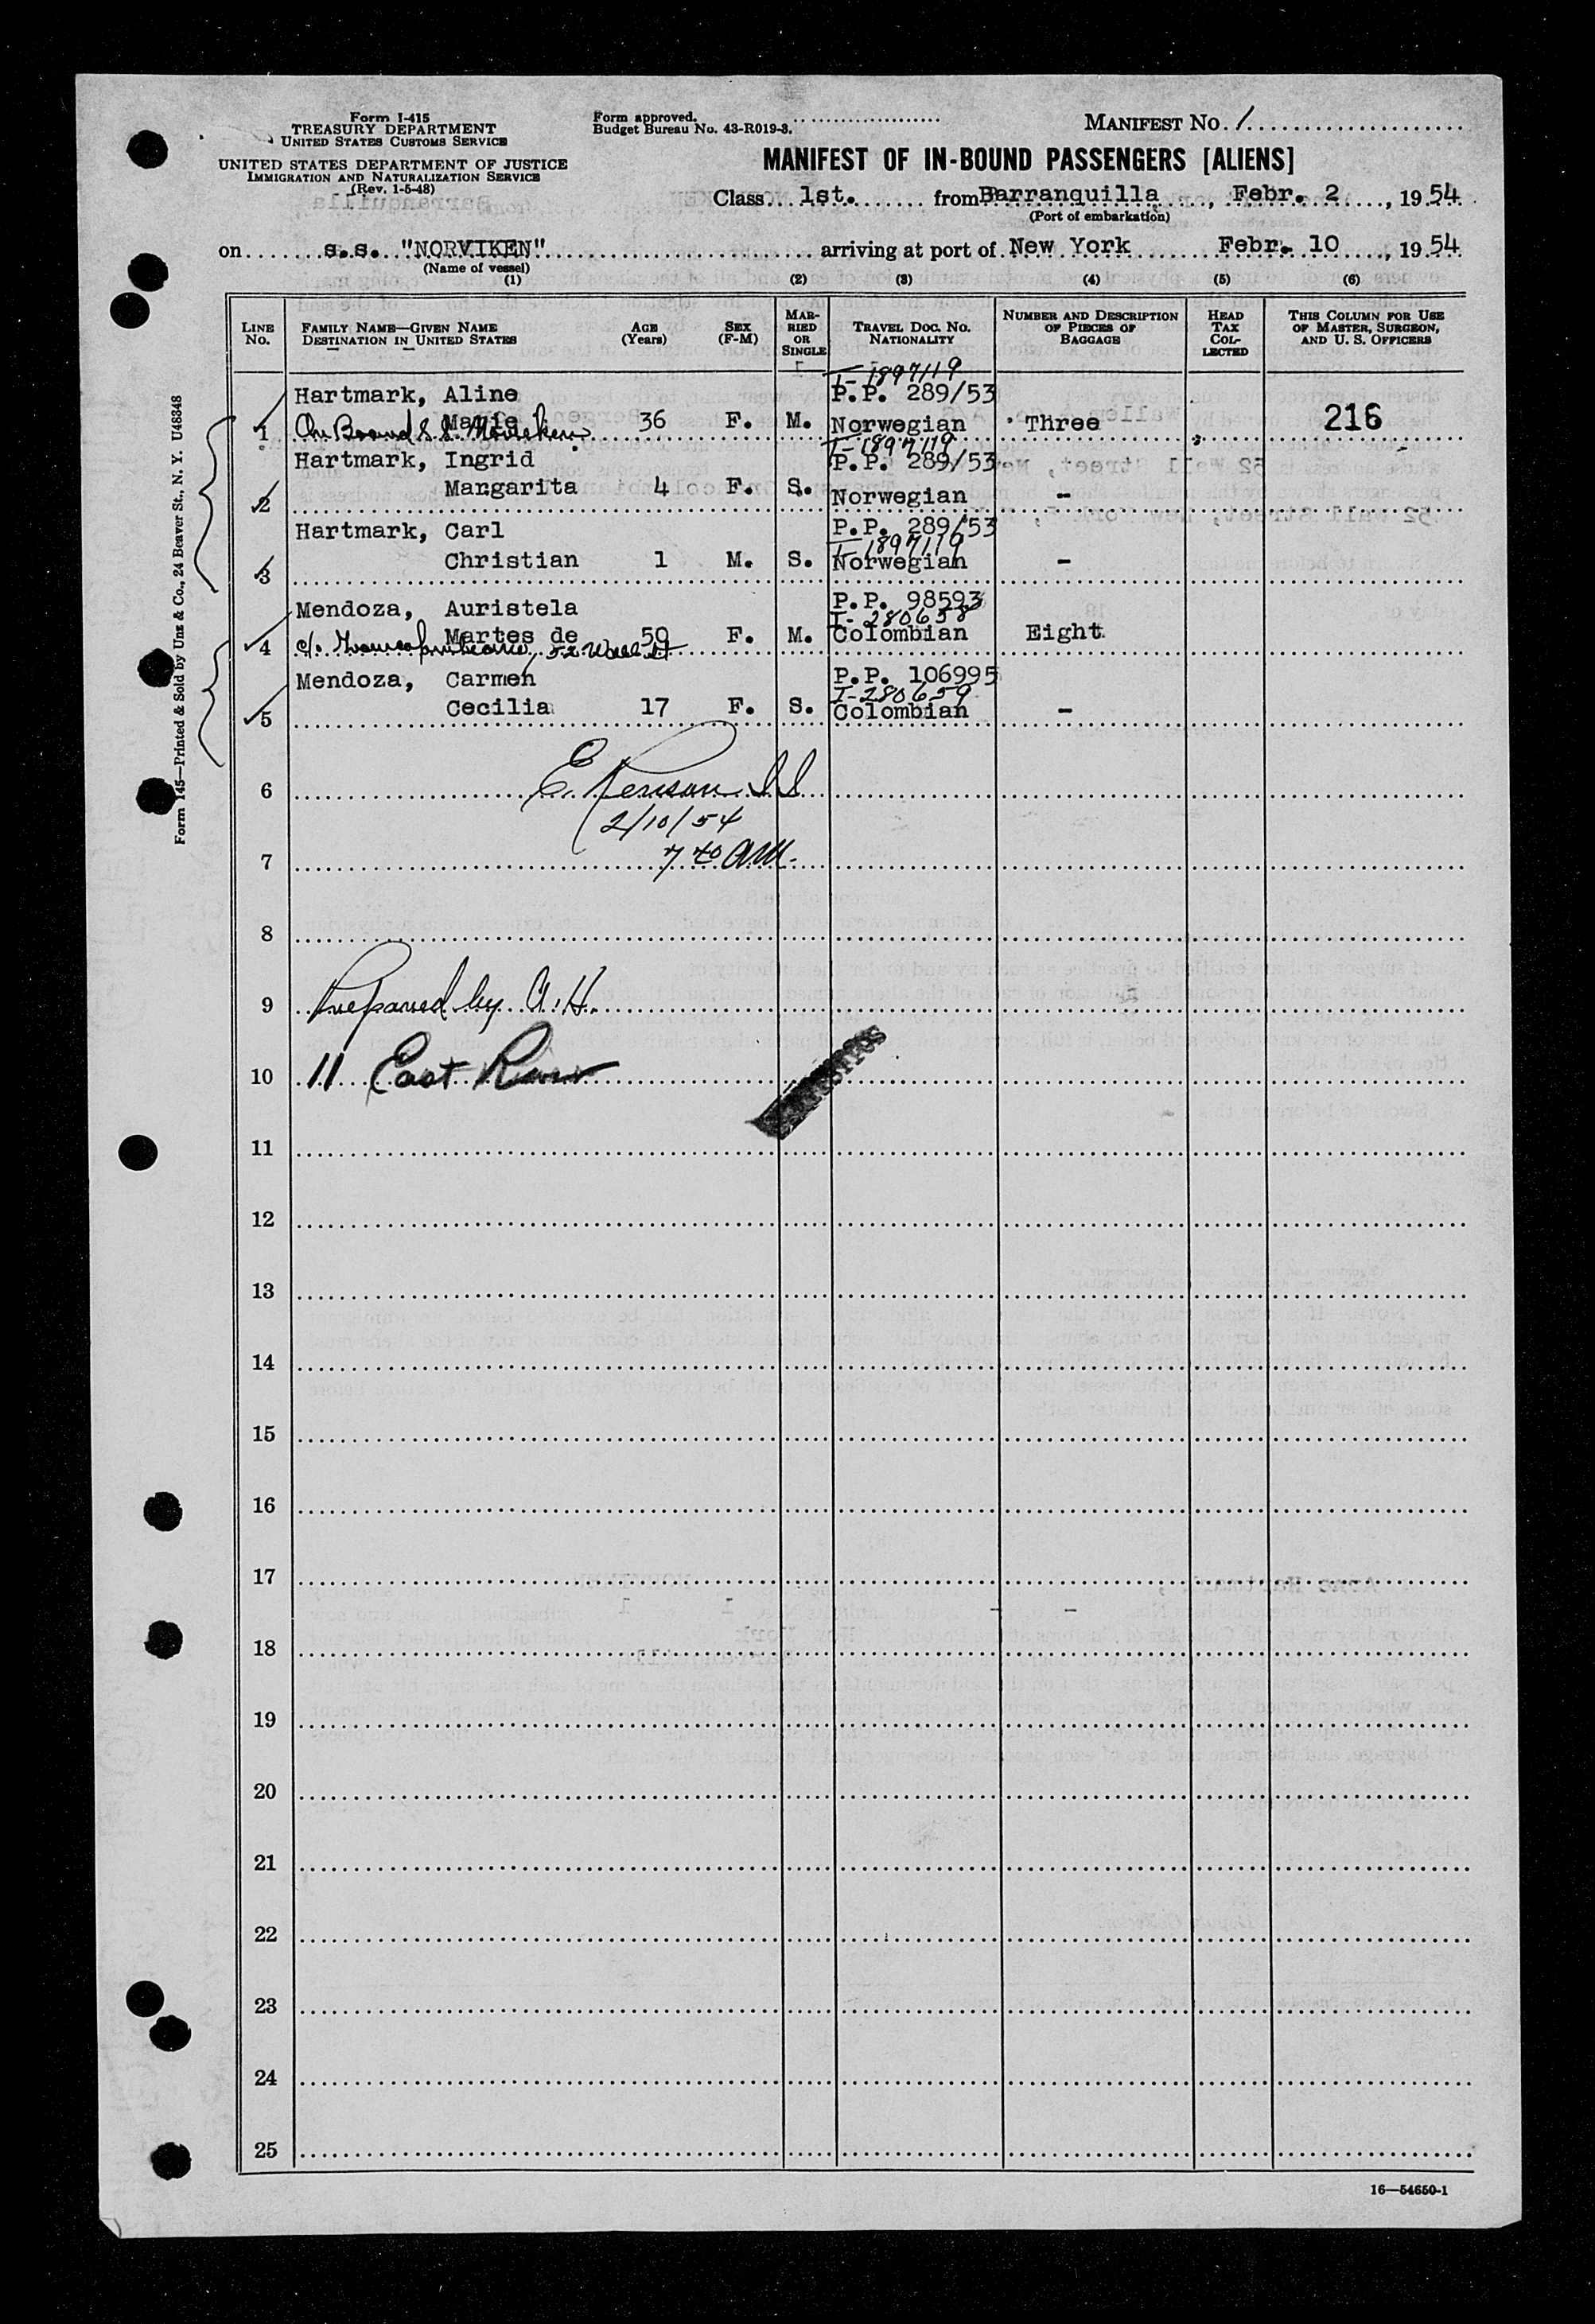 Form I-415
TREASURY DEPARTMENT
UNITED STATES CUSTOMS SERVICE
UNITED STATES DEPARTMENT OF JUSTICE
IMMIGRATION AND NATURALIZATION SERVICE
(Rev. 1-5-48)
Form approved.
Budget Bureau No. 43-R019-3.
MANIFEST NO. 1
MANIFEST OF IN-BOUND PASSENGERS [ALIENS]
Class 1st. from Barranquilla, Febr. 2, 1954
(Port of embarkation)
on s.s. "NORVIKEN" arriving at port of New York Febr. 10, 1954
(Name of vessel)
(1) (2) (3) (4) (5) (6)
LINE NO.
FAMILY NAME—GIVEN NAME
DESTINATION IN UNITED STATES
AGE (Years)
SEX (F-M)
MARRIED OR SINGLE
TRAVEL DOC. NO.
NATIONALITY
NUMBER AND DESCRIPTION OF PIECES OF BAGGAGE
HEAD TAX COLLECTED
THIS COLUMN FOR USE OF MASTER, SURGEON, AND U. S. OFFICERS
I-1897119
Hartmark, Aline P.P. 289/53
1 Marie 36 F. M. Norwegian Three 216
On Board S.S. Norviken
I-1897119
Hartmark, Ingrid P.P. 289/53
2 Margarita 4 F. S. Norwegian -
Hartmark, Carl P.P. 289/53
I-1897119
3 Christian 1 M. S. Norwegian -
Mendoza, Auristela P.P. 98593
I-280658
4 Martes de 50 F. M. Colombian Eight
c/o 52 Wall St
Mendoza, Carmen P.P. 106995
I-280659
5 Cecilia 17 F. S. Colombian -
6 E.
2/10/54
7 7 40 AM.
8
9 Prepared by A.H.
10 11 East River
11
12
13
14
15
16
17
18
19
20
21
22
23
24
25
16—54650-1
Form 145—Printed & Sold by Unz & Co., 24 Beaver St., N. Y. U48348